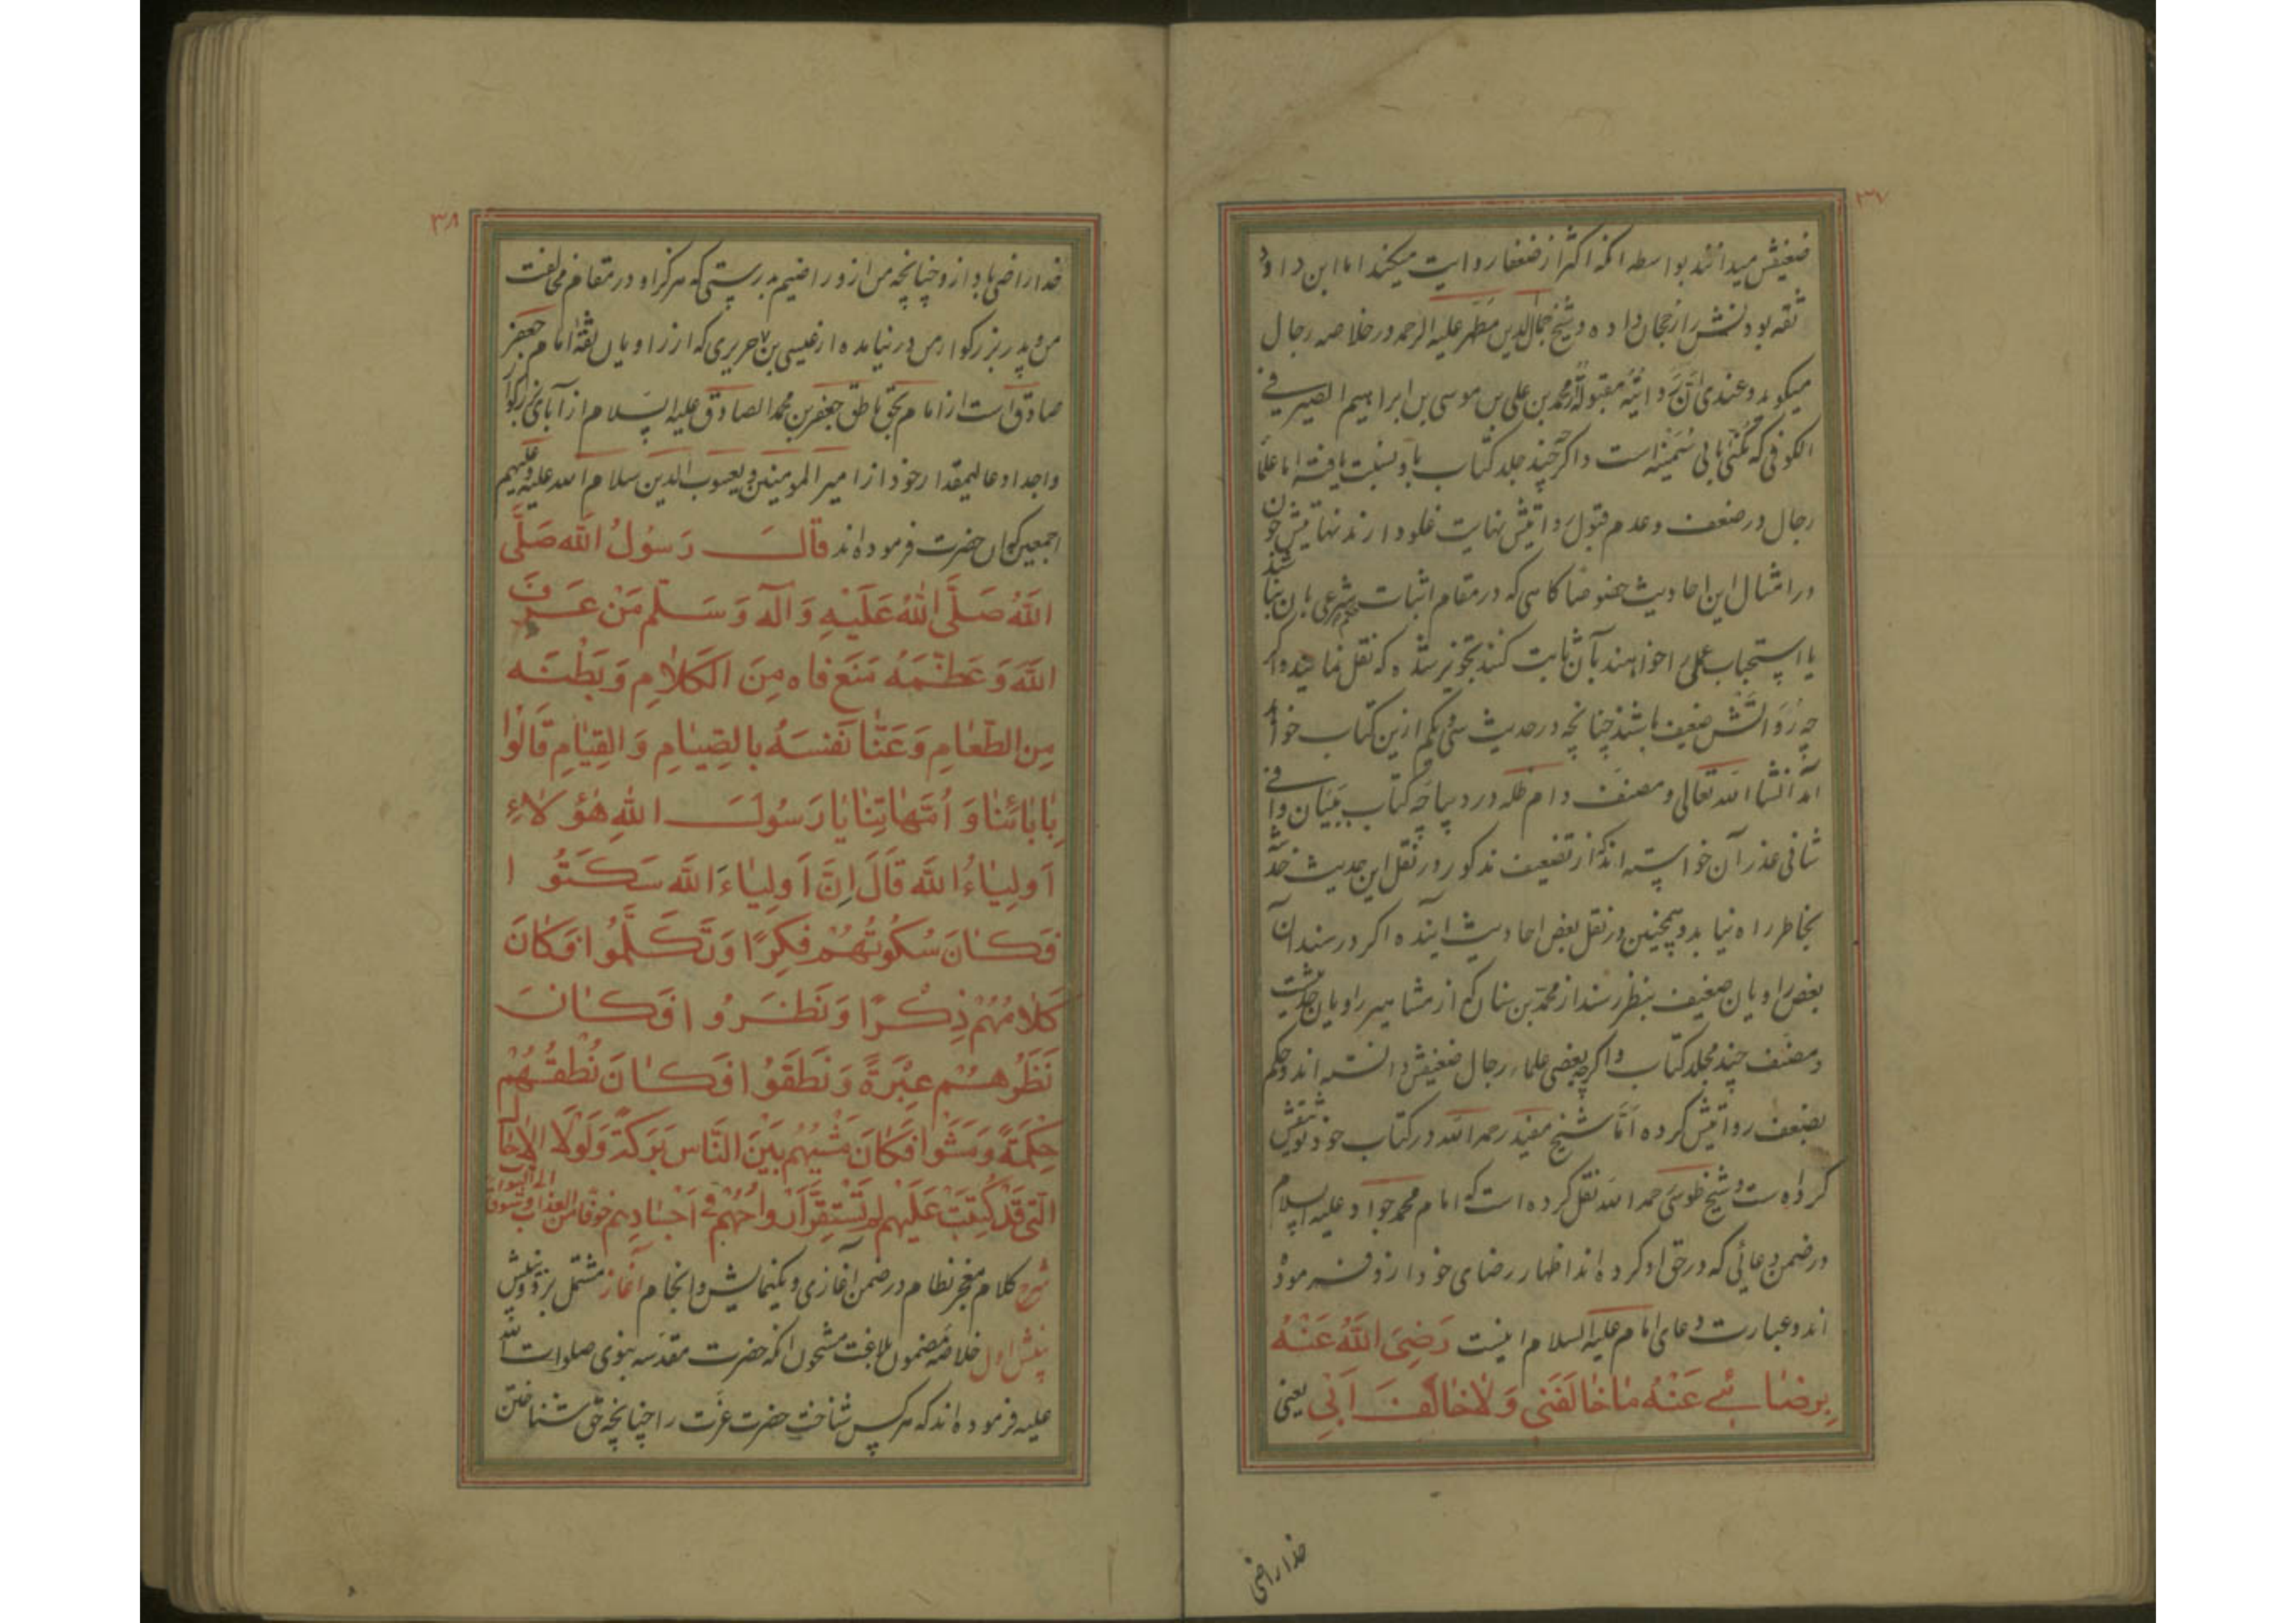 ۳۷
ضعیفش میدانند بواسطه انکه اکثر از ضعفا روایت میکند اما ابن داود
ثقه بودنش را رجحان داده و شیخ جمال الدین مطهر علیه الرحمه در خلاصه رجال
میکوید و عندی ان روایته مقبولة محمد بن علی بن موسی بن ابراهیم الصیرفی
الکوفی که مکنی بابی سمینه است و اکر چه چند جلد کتاب باو نسبت یافته اما علما
رجال در ضعف و عدم قبول روایتش نهایت غلو دارند نهایتش چون
در امثال این احادیث خصوصا کاهی که در مقام اثبات حکم شرعی بان نباشند
یا استحباب عملی را خواهند بآن ثابت کنند تجویز شده که نقل نمایند و اکر
چه رواتش ضعیف باشند چنانچه در حدیث سی و یکم ازین کتاب خواهد
آمد انشا الله تعالی و مصنف دام ظله در دیباچه کتاب ببیان وافی
شافی عذر آن خواسته اند که از تضعیف مذکور در نقل این حدیث خدشه
بخاطر راه نیابد و همچنین در نقل بعض احادیث اینده اکر در سند آن
بعض راویان ضعیف بنظر رسند از محمد بن سنان که از مشاهیر راویان حدیثست
و مصنف چند مجلد کتاب و اکر چه بعضی علماء رجال ضعیفش دانسته اند و حکم
بضعف روایتش کرده اما شیخ مفید رحمه الله در کتاب خود توثیقش
کرده است و شیخ طوسی رحمه الله نقل کرده است که امام محمد جواد علیه السلام
در ضمن دعائی که در حق او کرده اند اظهار رضای خود ازو فرموده
اند و عبارت دعای امام علیه السلام اینست رَضِیَ اللّٰهُ عَنْهُ
بِرِضَائی عَنْهُ مَا خَالَفَنی وَلَا خَالَفَ اَبی یعنی
خدا راضی
۳۸
خدا راضی باد ازو چنانچه من ازو راضیم بدرستی که هرکز او در مقام مخالفت
من و پدر بزرکوار من در نیامده از عیسی بن حریری که از راویان ثقه امام جعفر
صادق است از امام بحق ناطق جعفر بن محمد الصادق علیه السلام از آبای بزرکوار
و اجداد عالیمقدار خود از امیر المومنین و یعسوب الدین سلام الله علیه و علیهم
اجمعین که ان حضرت فرموده اند قالَ رَسُولُ اللّٰه صَلَّی
اللّٰهُ صَلَّی اللّٰهُ عَلَیْهِ وَ آلِهِ وَ سَلَّم مَنْ عَرَفَ
اللّٰهَ وَ عَظَّمَهُ مَنَعَ فاه مِنَ الکَلامِ وَ بَطْنَه
مِنَ الطَّعامِ وَ عَنّا نَفسَهُ بِالصِّیامِ وَ القِیامِ قالُوا
بِابائِنا وَ اُمَّهاتِنا یا رَسُولَ اللّٰهِ هٰؤُلاءِ
اَولِیاءُ اللّٰه قالَ اِنَّ اَولِیاءَ اللّٰه سَکَتُوا
فَکانَ سُکُوتُهُمْ فِکرًا وَ تَکَلَّمُوا فَکانَ
کَلامُهُمْ ذِکْرًا وَ نَظَرُوا فَکانَ
نَظَرُهُم عِبْرَةً وَ نَطَقُوا فَکانَ نُطْقُهُمْ
حِکْمَةً وَ مَشَوا فَکانَ مَشْیُهُم بَیْنَ النَّاسِ بَرَکَةً وَ لَوْلَا الآجال
الَّتی قَدْ کُتِبَتْ عَلَیْهِم لَمْ تَسْتَقِرَّ اَرْواحُهُمْ فی اَجْسادِهِم خَوفًا مِنَ العَذابِ وَ شَوقًا الی الثواب
شرح کلام معجز نظام در ضمن آغازی و یکنمایش و انجام آغاز مشتمل بر دو بینش
بینش اول خلاصه مضمون بلاغت مشحون انکه حضرت مقدسه نبوی صلوات الله
علیه فرموده اند که هر کس شناخت حضرت عزت را چنانچه حق شناختن